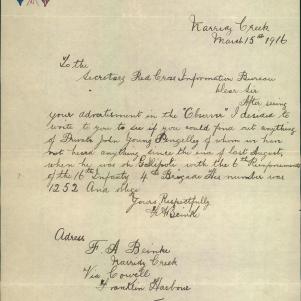 Narridy Creek
March 15th 1916
To the
Secretary Red Cross Information Bureau
Dear Sir
After seeing
your advertisement in the "Observer" I decided to
write to you to see if you could find out anything
of Private John Young Pengelley of whom we have
not heard anything since the end of last August
when he was on Gallipoli with the 6th Reinforcements
of the 16th Infantry 4th Brigade His number was
1252 And oblige
Yours Respectfully
F. A. Beinke
Adress
F. A. Beinke
Narridy Creek
Via Cowell
Franklin Harbour